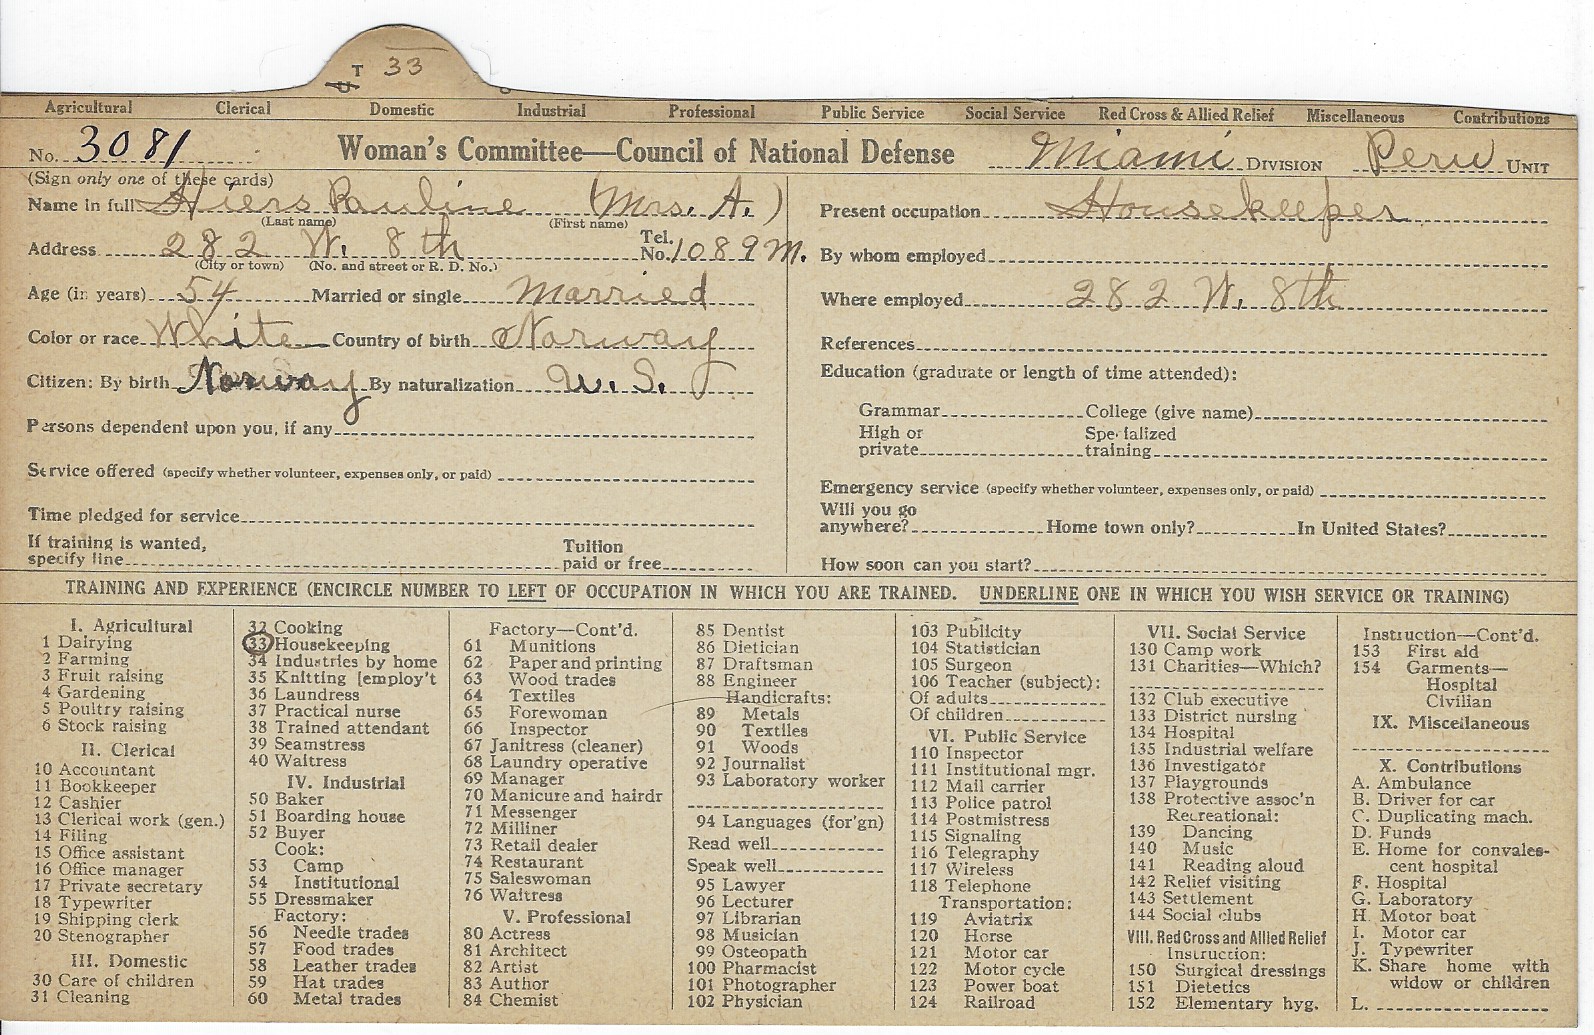 T 33
Agricultural Clerical Domestic Industrial Professional Public Service Social Service Red Cross & Allied Relief Miscellaneous Contributions
No. 3081 Woman's Committee—Council of National Defense Miami DIVISION Peru UNIT
(Sign only one of these cards)
Name in full Hiers Pauline (Mrs. A.)
(Last name) (First name)
Address 282 W. 8th Tel. No. 1089 M.
(City or town) (No. and street or R. D. No.)
Age (in years) 54 Married or single Married
Color or race White Country of birth Norway
Citizen: By birth Norway By naturalization U.S.
Persons dependent upon you, if any
Service offered (specify whether volunteer, expenses only, or paid)
Time pledged for service
If training is wanted,
specify line Tuition paid or free
Present occupation Housekeeper
By whom employed
Where employed 282 W. 8th
References
Education (graduate or length of time attended):
Grammar College (give name)
High or private Specialized training
Emergency service (specify whether volunteer, expenses only, or paid)
Will you go
anywhere? Home town only? In United States?
How soon can you start?
TRAINING AND EXPERIENCE (ENCIRCLE NUMBER TO LEFT OF OCCUPATION IN WHICH YOU ARE TRAINED. UNDERLINE ONE IN WHICH YOU WISH SERVICE OR TRAINING)
I. Agricultural
1 Dairying
2 Farming
3 Fruit raising
4 Gardening
5 Poultry raising
6 Stock raising
II. Clerical
10 Accountant
11 Bookkeeper
12 Cashier
13 Clerical work (gen.)
14 Filing
15 Office assistant
16 Office manager
17 Private secretary
18 Typewriter
19 Shipping clerk
20 Stenographer
III. Domestic
30 Care of children
31 Cleaning
32 Cooking
33 Housekeeping
34 Industries by home
35 Knitting [employ't
36 Laundress
37 Practical nurse
38 Trained attendant
39 Seamstress
40 Waitress
IV. Industrial
50 Baker
51 Boarding house
52 Buyer
Cook:
53 Camp
54 Institutional
55 Dressmaker
Factory:
56 Needle trades
57 Food trades
58 Leather trades
59 Hat trades
60 Metal trades
Factory—Cont'd.
61 Munitions
62 Paper and printing
63 Wood trades
64 Textiles
65 Forewoman
66 Inspector
67 Janitress (cleaner)
68 Laundry operative
69 Manager
70 Manicure and hairdr
71 Messenger
72 Milliner
73 Retail dealer
74 Restaurant
75 Saleswoman
76 Waitress
V. Professional
80 Actress
81 Architect
82 Artist
83 Author
84 Chemist
85 Dentist
86 Dietician
87 Draftsman
88 Engineer
Handicrafts:
89 Metals
90 Textiles
91 Woods
92 Journalist
93 Laboratory worker
94 Languages (for'gn)
Read well
Speak well
95 Lawyer
96 Lecturer
97 Librarian
98 Musician
99 Osteopath
100 Pharmacist
101 Photographer
102 Physician
103 Publicity
104 Statistician
105 Surgeon
106 Teacher (subject):
Of adults
Of children
VI. Public Service
110 Inspector
111 Institutional mgr.
112 Mail carrier
113 Police patrol
114 Postmistress
115 Signaling
116 Telegraphy
117 Wireless
118 Telephone
Transportation:
119 Aviatrix
120 Horse
121 Motor car
122 Motor cycle
123 Power boat
124 Railroad
VII. Social Service
130 Camp work
131 Charities—Which?
132 Club executive
133 District nursing
134 Hospital
135 Industrial welfare
136 Investigator
137 Playgrounds
138 Protective assoc'n
Recreational:
139 Dancing
140 Music
141 Reading aloud
142 Relief visiting
143 Settlement
144 Social clubs
VIII. Red Cross and Allied Relief
Instruction:
150 Surgical dressings
151 Dietetics
152 Elementary hyg.
Instruction—Cont'd.
153 First aid
154 Garments—
Hospital
Civilian
IX. Miscellaneous
X. Contributions
A. Ambulance
B. Driver for car
C. Duplicating mach.
D. Funds
E. Home for convales-
cent hospital
F. Hospital
G. Laboratory
H. Motor boat
I. Motor car
J. Typewriter
K. Share home with
widow or children
L.